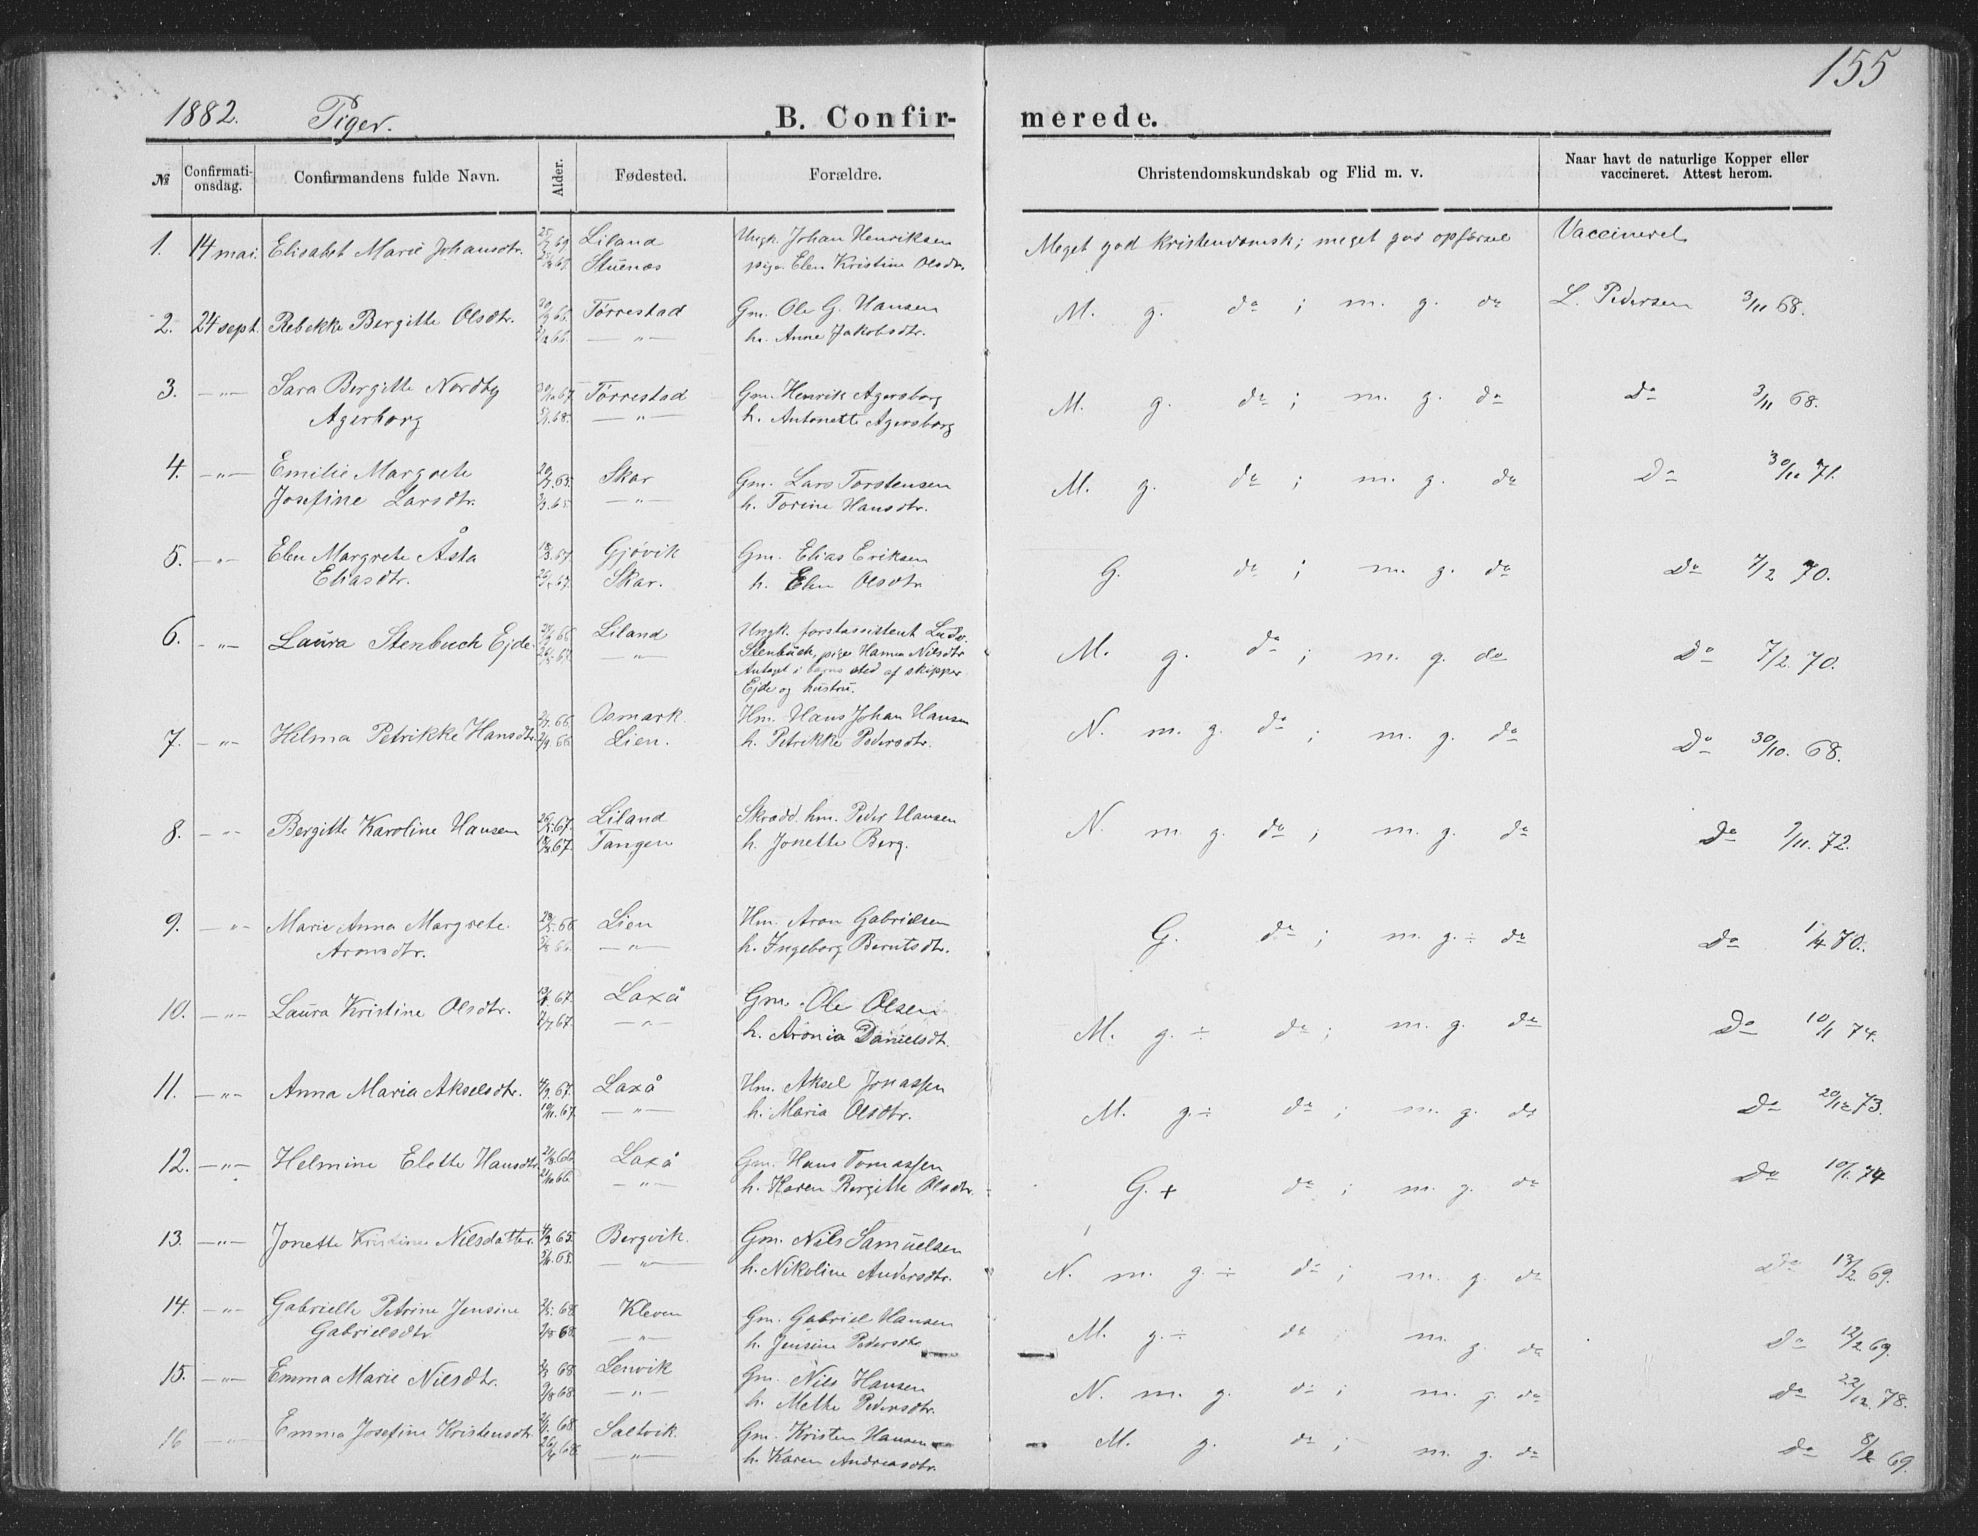 155
1882. Piger. B. Confir- merede.
№ Confirmationsdag. Confirmandens fulde Navn. Alder. Fødested. Forældre. Christendomskundskab og Flid m. v. Naar havt de naturlige Kopper eller vaccineret. Attest herom.
1. 14 mai. Elisabet Marie Johansdtr. Liland Ungk. Johan Henriksen Meget god kristendomsk; meget god opførsel Vaccineret
Stuenæs pige Elen Kristine Olsdtr.
2. 24 sept. Rebekke Bergitte Olsdtr. Tørrestad Gm. Ole G. Hansen M. g. do ; m. g. do L. Pedersen 3/11 68.
—„— h. Anne Jakobsdtr.
3. —„— Sara Bergitte Nordby Tørrestad Gm. Henrik Agersborg M. g. do ; m. g. do Do 3/11 68.
Agerborg —„— h. Antonette Agersborg
4. —„— Emilie Margrete Skar Gm. Lars Torstensen M. g. do ; m. g. do Do 30/12 71.
Josefine Larsdtr. —„— h. Torine Hansdtr.
5. —„— Elen Margrete Åsta Gjøvik Gm. Elias Eriksen G. do ; m. g. do Do 7/2 70.
Eliasdtr. Skar. h. Elen Olsdtr
6. —„— Laura Stenbuch Ejde Liland Ungk. forstassistent Ludv. M. g. do ; m. g. do Do 7/2. 70.
—„— Stenbuch, pige Hanna Nilsdtr
Antaget i barns sted af skipper
Ejde og hustru.
7. —„— Helma Petrikke Hansdtr. Osmark. Hm. Hans Johan Hansen N. m. g. do ; m. g. do Do 30/10. 68.
Lien. h. Petrikke Pedersdtr.
8. —„— Bergitte Karoline Hansen Liland Skrædd. hm. Peder Hansen N. m g. do ; m. g. do Do 7/11. 72.
Tangen h. Jonette Berg.
9. —„— Marie Anna Margrete Lien Hm. Aron Gabrielsen G. do ; m. g. ÷ do Do 1/4 70.
Aronsdtr. —„— h. Ingeborg Berntsdtr.
10. —„— Laura Kristine Olsdtr. Laxå Gm. Ole Olsen M. g. ÷ do ; m. g. do Do 10/1 74.
—„— h. Aronia Danielsdtr.
11. —„— Anna Maria Akselsdtr. Laxå Hm. Aksel Jonassen M. g. ÷ do ; m. g. do Do 20/12 73.
—„— h. Maria Olsdtr.
12. —„— Helmine Elette Hansdtr Laxå Gm. Hans Tomassen G. + do ; m. g. do Do 10/1. 74
—„— h. Karen Bergitte Olsdtr.
13. —„— Jonette Kristine Nilsdatter. Bergvik. Gm. Nils Samuelsen N. m. g. ÷ do ; m. g. do Do 13/2 69.
—„— h. Nikoline Andersdtr.
14. —„— Gabrielle Petrine Jensine Kleven Gm. Gabriel Hansen M. g. ÷ do ; m. g. do Do 12/2 69.
Gabrielsdtr —„— h. Jensine Pedersdtr
15. —„— Emma Marie Nilsdtr. Lenvik Gm. Nils Hansen N. m. g. do ; m. g. do Do 22/12. 78.
—„— h. Mette Pedersdtr.
16 —„— Emma Josefine Kristensdtr Saltvik. Gm. Kristen Hansen M. g. do ; m. g. do Do 8/2 69.
—„— h. Karen Andreasdtr.